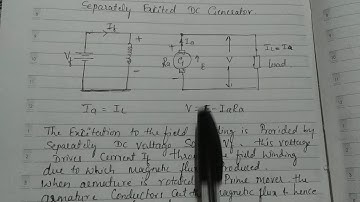 Separately Excited DC Generator.
If
+
+
Ia
IL = Ia
Vf
Ra
G
E
V
Load
-
-
Ia = IL
V = E - IaRa
The Excitation to the field winding is Provided by
Separately DC Voltage Vf. this voltage
Drives Current If field winding
due to which magnetic flux Produced
When armature is rotated Prime mover the
armature Conductors Cut magnetic flux & hence